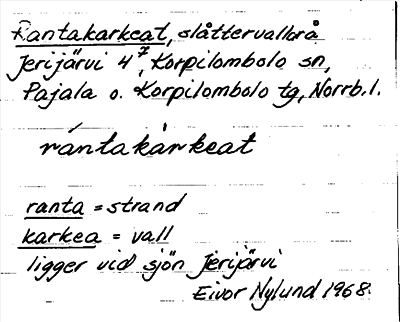 Rantakarkeat, slåttervallar å
Jerijärvi 4⁷, Korpilombolo sn,
Pajala o. Korpilombolo tg, Norrb. l.
rántakàrkeat
ranta = strand
karkea = vall
ligger vid sjön Jerijärvi
Eivor Nylund 1968.